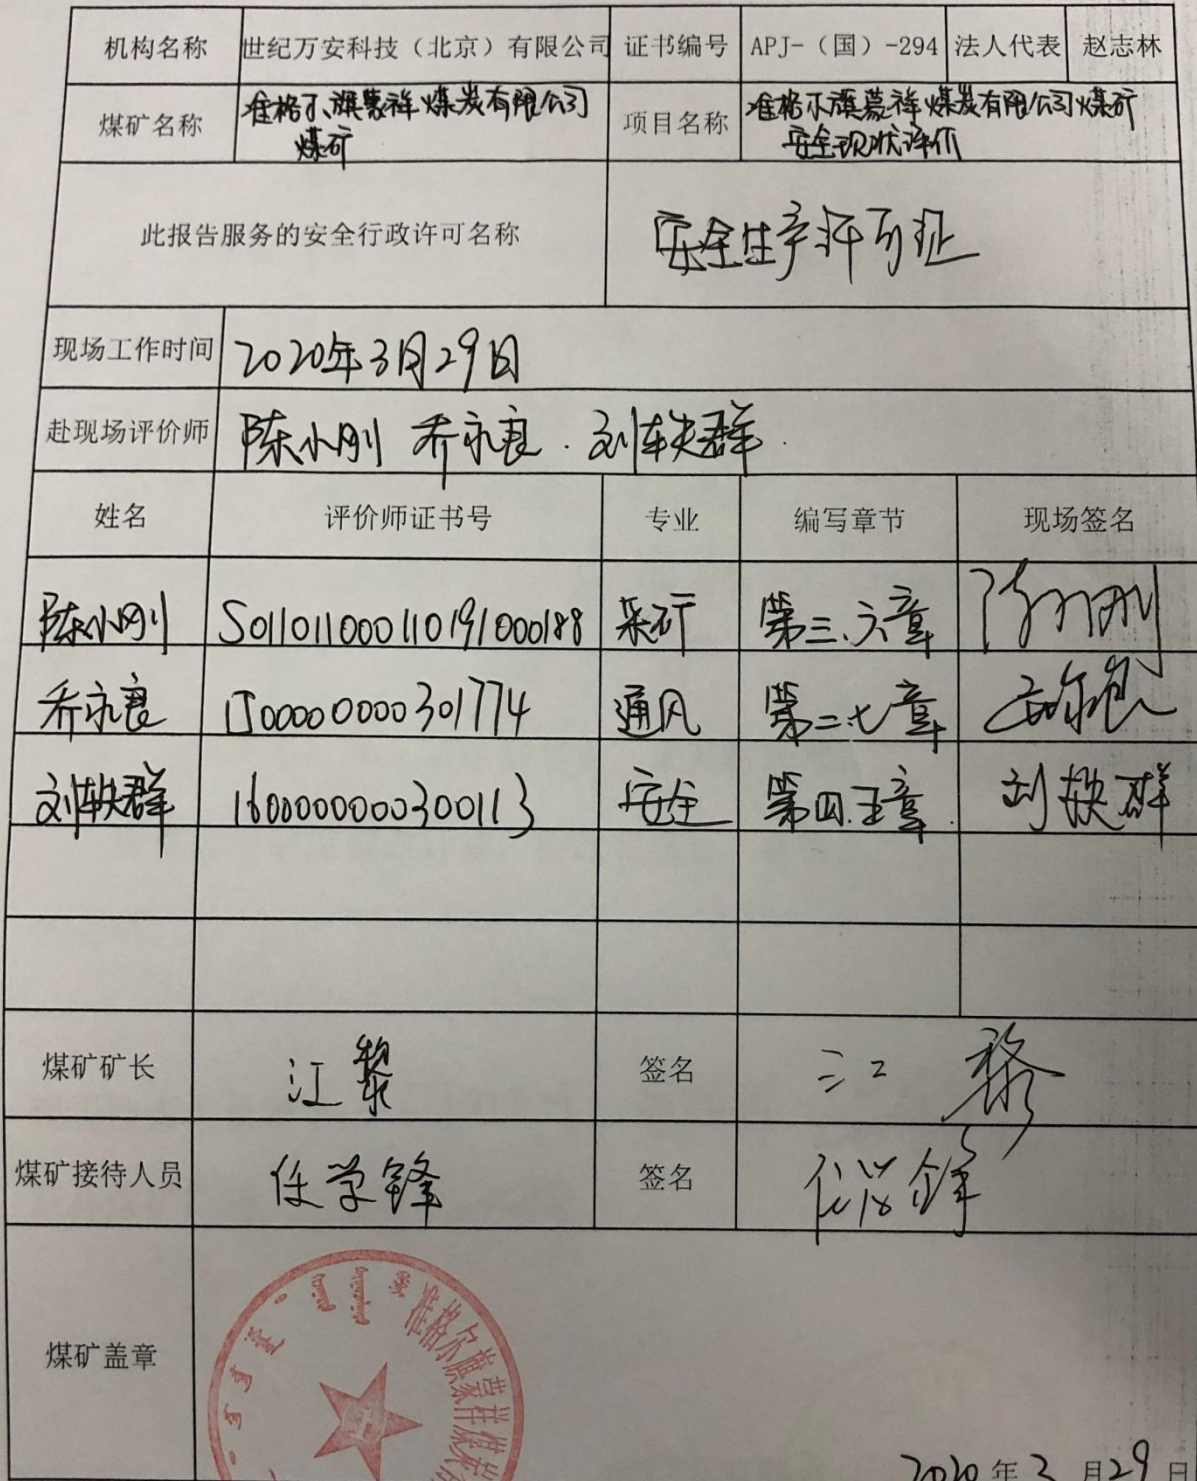 机构名称 世纪万安科技（北京）有限公司 证书编号 APJ-（国）-294 法人代表 赵志林
煤矿名称 准格尔旗蒙祥煤炭有限公司
煤矿
项目名称 准格尔旗蒙祥煤炭有限公司煤矿
安全现状评价
此报告服务的安全行政许可名称 安全生产许可证
现场工作时间 2020年3月29日
赴现场评价师 陈小刚 乔永良 . 刘轶群
姓名 评价师证书号 专业 编写章节 现场签名
陈小刚 S011011000110191000188 采矿 第三、六章 陈小刚
乔永良 1500000000301774 通风 第二七章 乔永良
刘轶群 1600000000300113 安全 第四.五章 刘轶群
煤矿矿长 江黎 签名 江黎
煤矿接待人员 任学锋 签名 任学锋
煤矿盖章
准格尔旗蒙祥煤炭
2020年3月29日